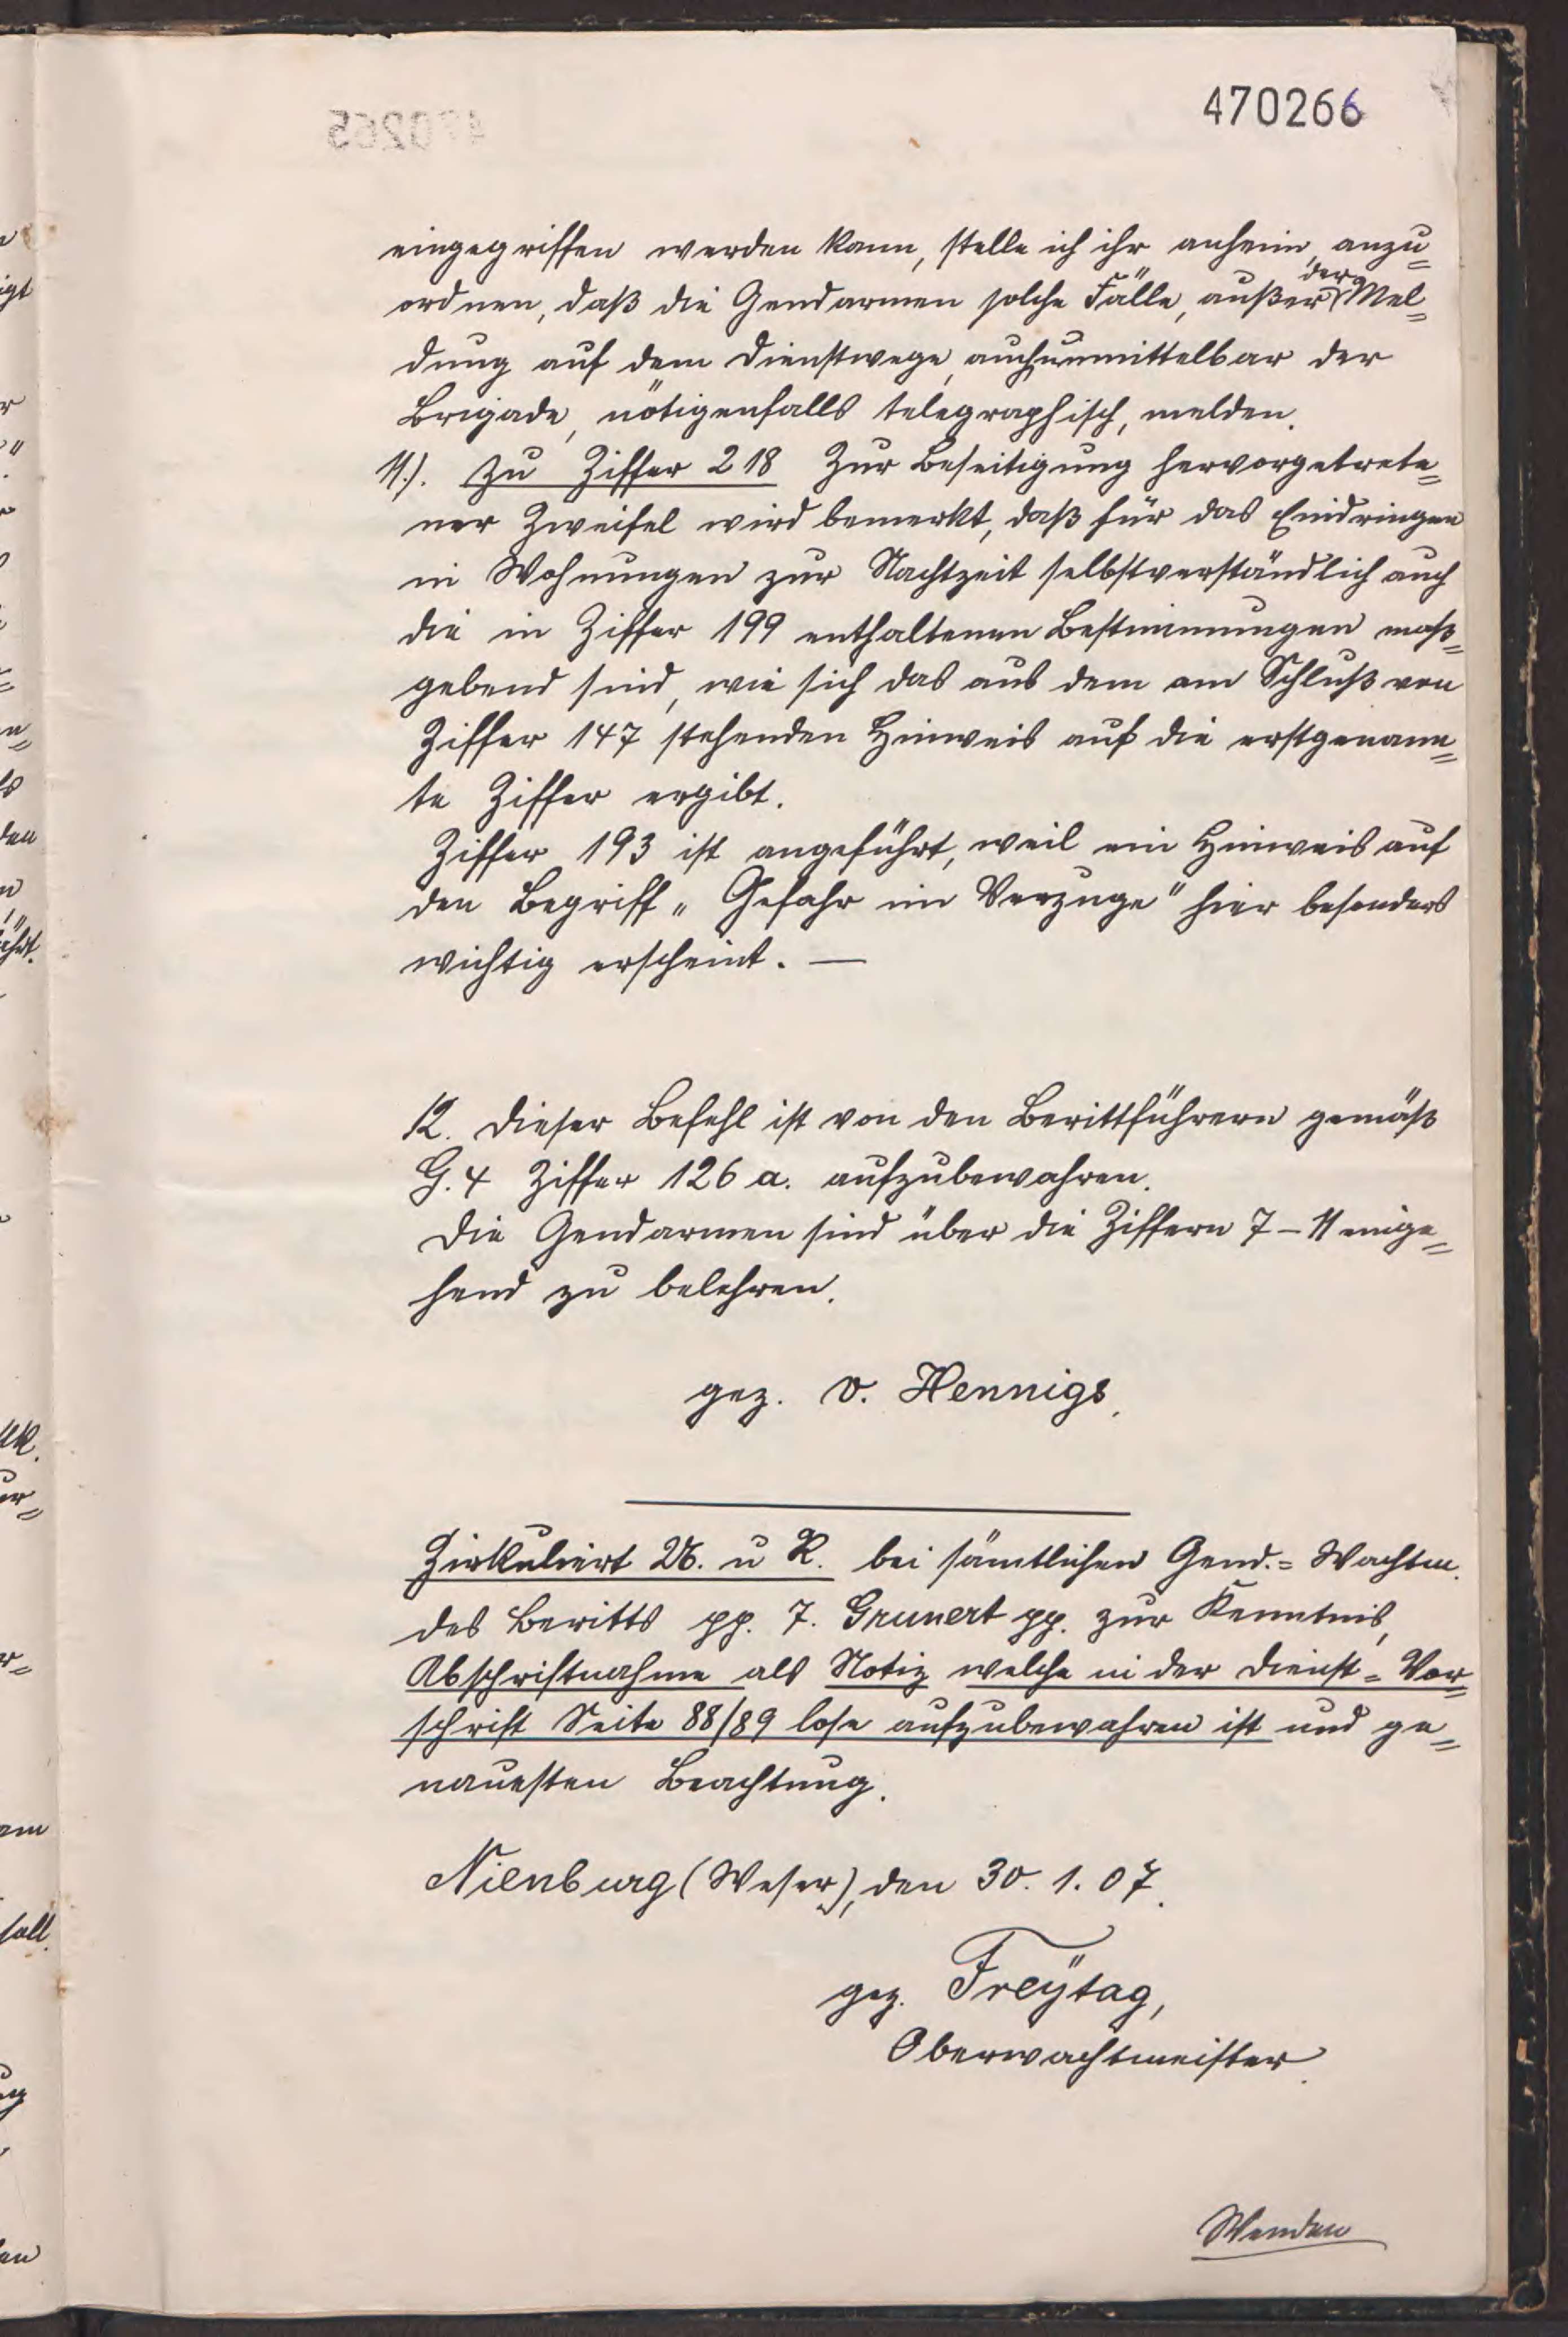 470266
470265
eingegriffen werden kann, stelle ich ihr anheim, anzu=
ordnen, daß die Gendarmen solche Fälle, außer der Mel=
dung auf dem Dienstwege, auch unmittelbar der
Brigade, nötigenfalls telegraphisch, melden.
11.). Zu Ziffer 218 Zur Beseitigung hervorgetrete=
ner Zweifel wird bemerkt, daß für das Eindringen
in Wohnungen zur Nachtzeit selbstverständlich auch
die in Ziffer 199 enthaltenen Bestimmungen maß=
gebend sind, wie sich das aus dem am Schluß von
Ziffer 147 stehenden Hinweis auf die erstgenann=
te Ziffer ergibt.
Ziffer 193 ist angeführt, weil ein Hinweis auf
den Begriff „Gefahr im Verzuge" hier besonders
wichtig erscheint. —
12. Dieser Befehl ist von den Berittführern gemäß
G. 4 Ziffer 126 a. aufzubewahren.
Die Gendarmen sind über die Ziffern 7–11 einge=
hend zu belehren.
gez. v. Hennigs.
Zirkuliert U. u R. bei sämtlichen Gend.= Wachtm.
des Beritts pp. 7. Grunert pp. zur Kenntnis,
Abschriftnahme als Notiz welche in der Dienst=Vor=
schrift Seite 88/89 lose aufzubewahren ist und ge=
nauesten Beachtung.
Nienburg (Weser), den 30. 1. 07.
gez. Freÿtag,
Oberwachtmeister.
Wenden